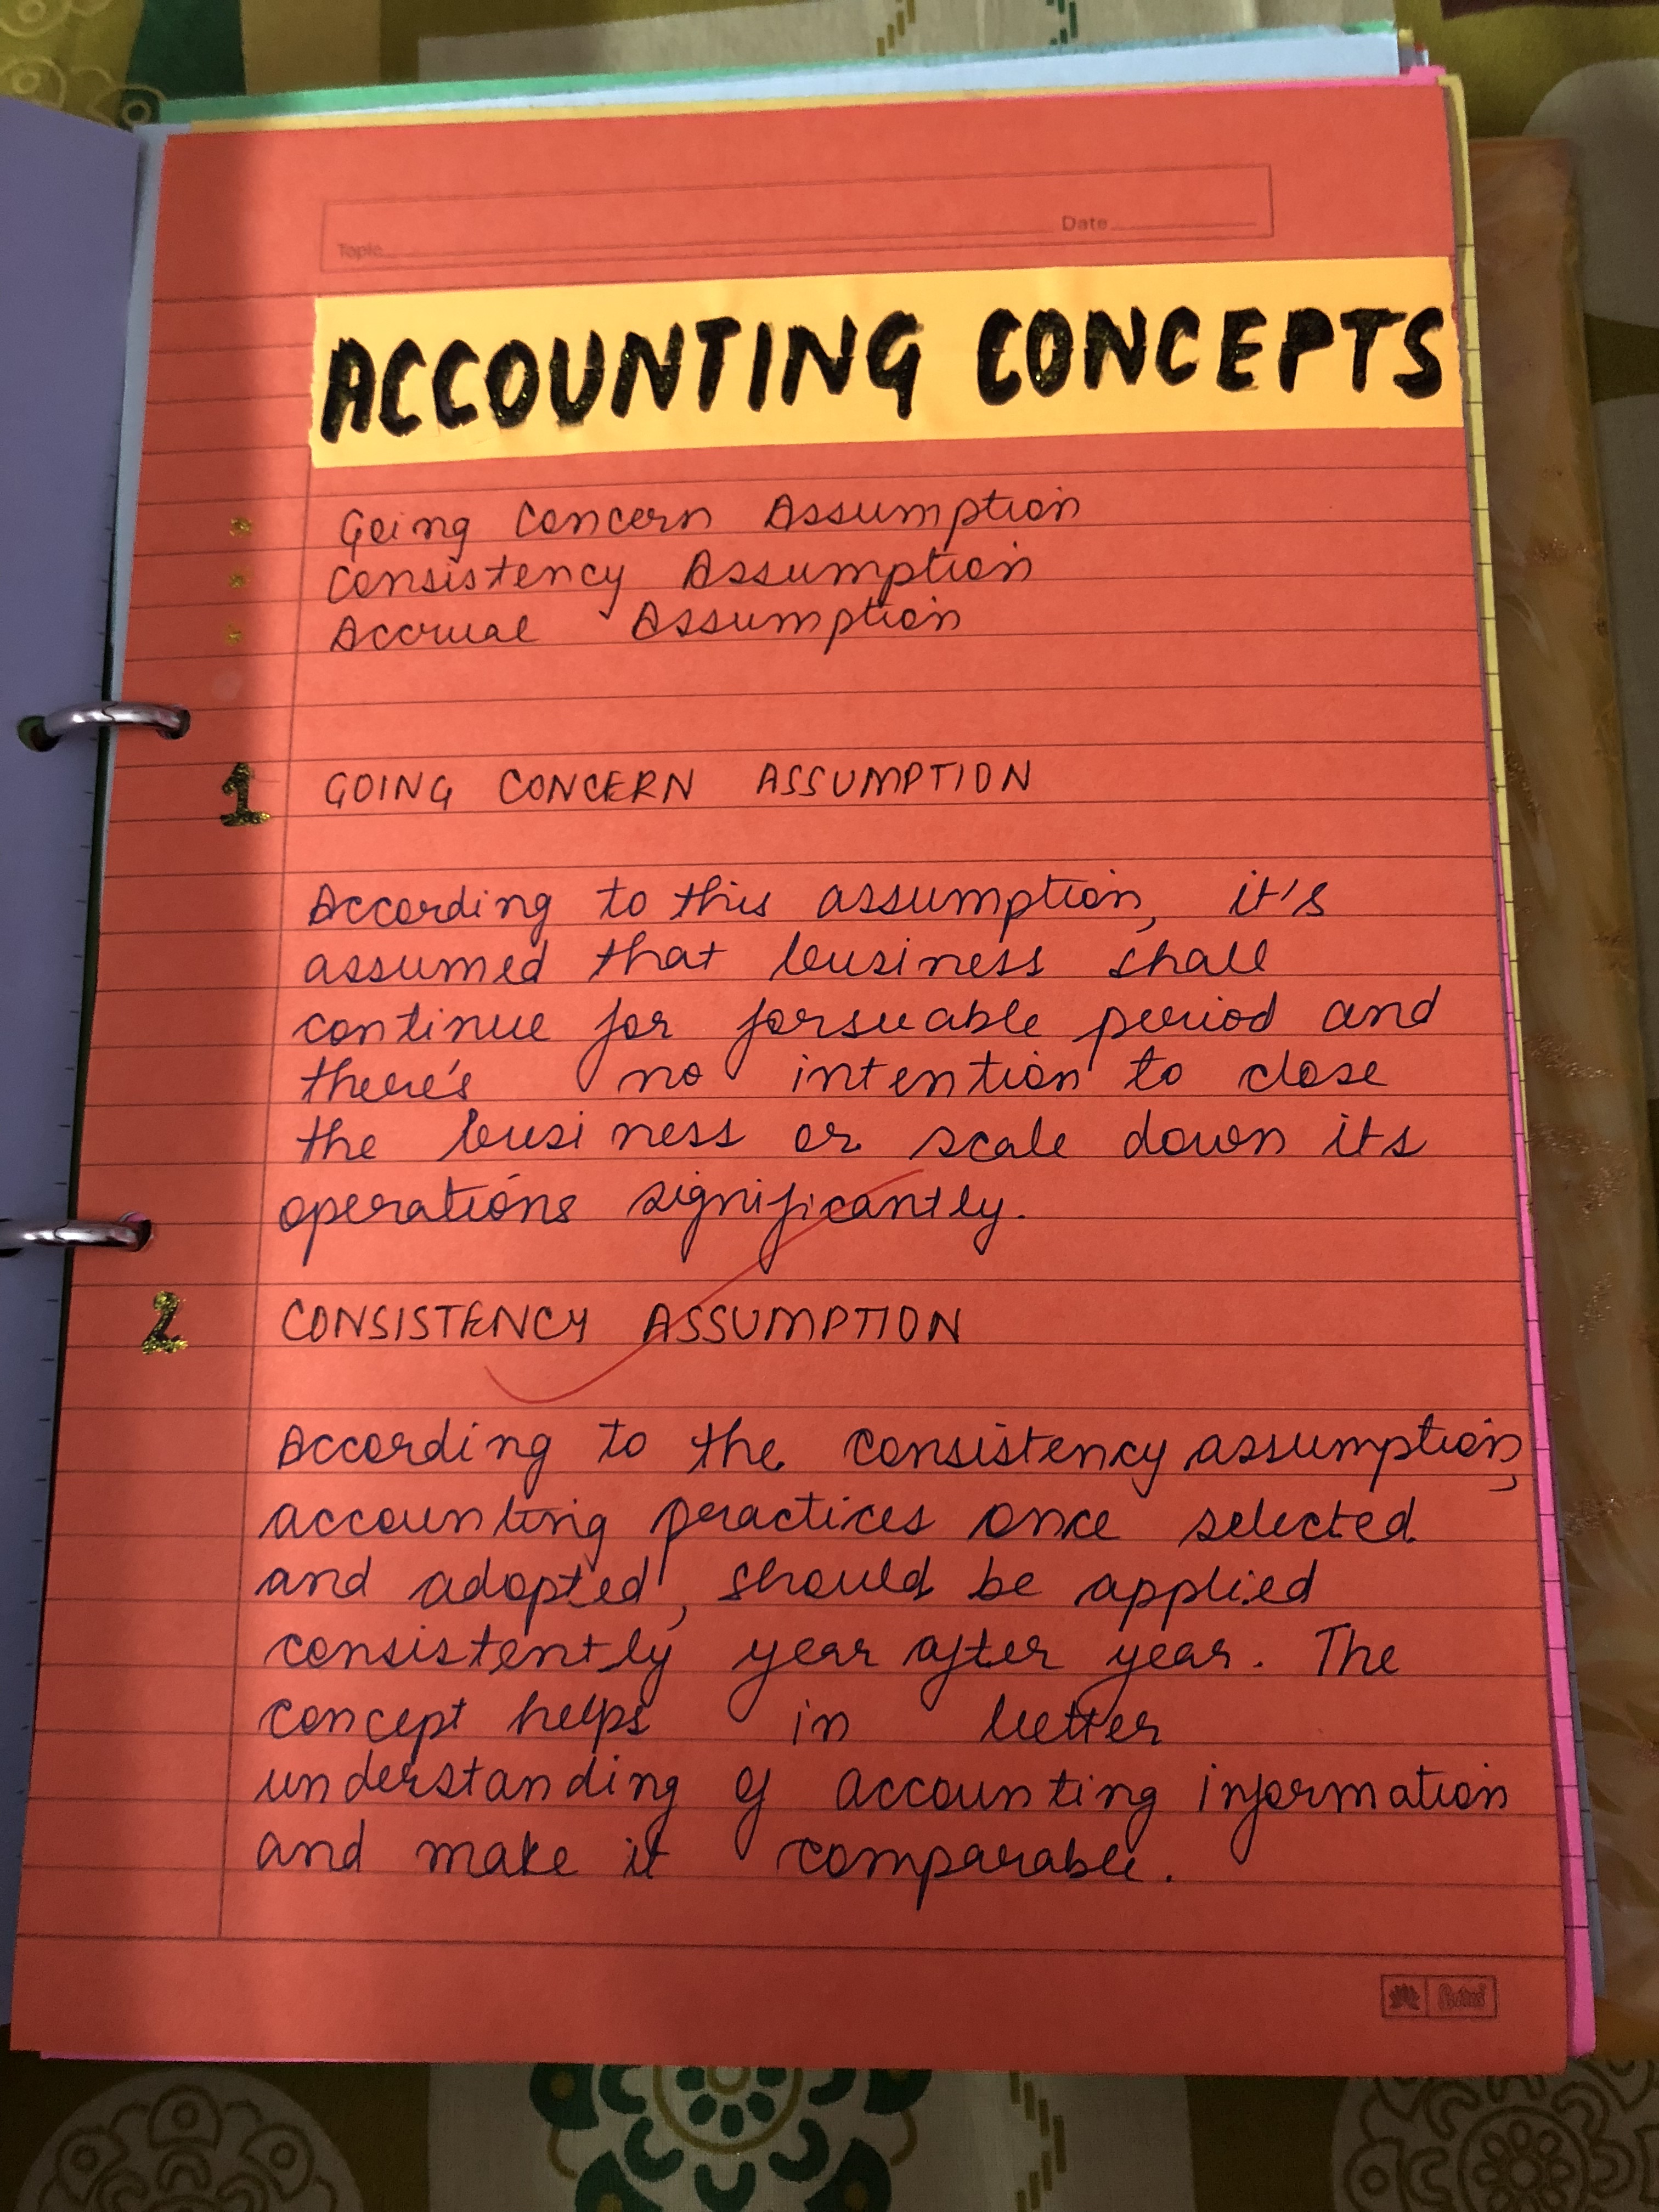 Topic
Date
ACCOUNTING CONCEPTS
Going Concern Assumption
Consistency Assumption
Accrual Assumption
1 GOING CONCERN ASSUMPTION
According to this assumption, it's
assumed that business shall
continue for forseuable period and
there's no intention to close
the business or scale down its
operations significantly.
2 CONSISTENCY ASSUMPTION
According to the consistency assumption,
accounting practices once selected
and adopted, should be applied
consistently year after year. The
concept helps in better
understanding of accounting information
and make it comparable.